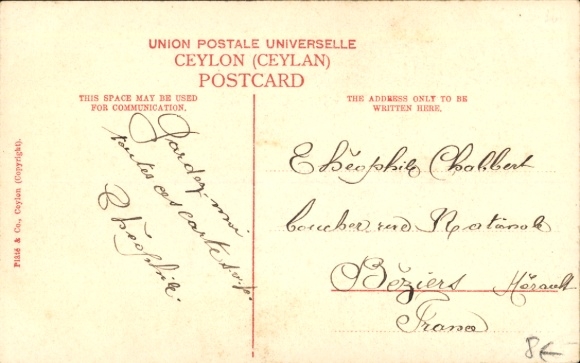 UNION POSTALE UNIVERSELLE
CEYLON (CEYLAN)
POSTCARD
THIS SPACE MAY BE USED
FOR COMMUNICATION.
THE ADDRESS ONLY TO BE
WRITTEN HERE.
Plâté & Co., Ceylon (Copyright).
Gardez moi
toutes ces cartes s.v.p.
Théophile.
Théophile Chabbert
boucher rue
Béziers Hérault
France
8€